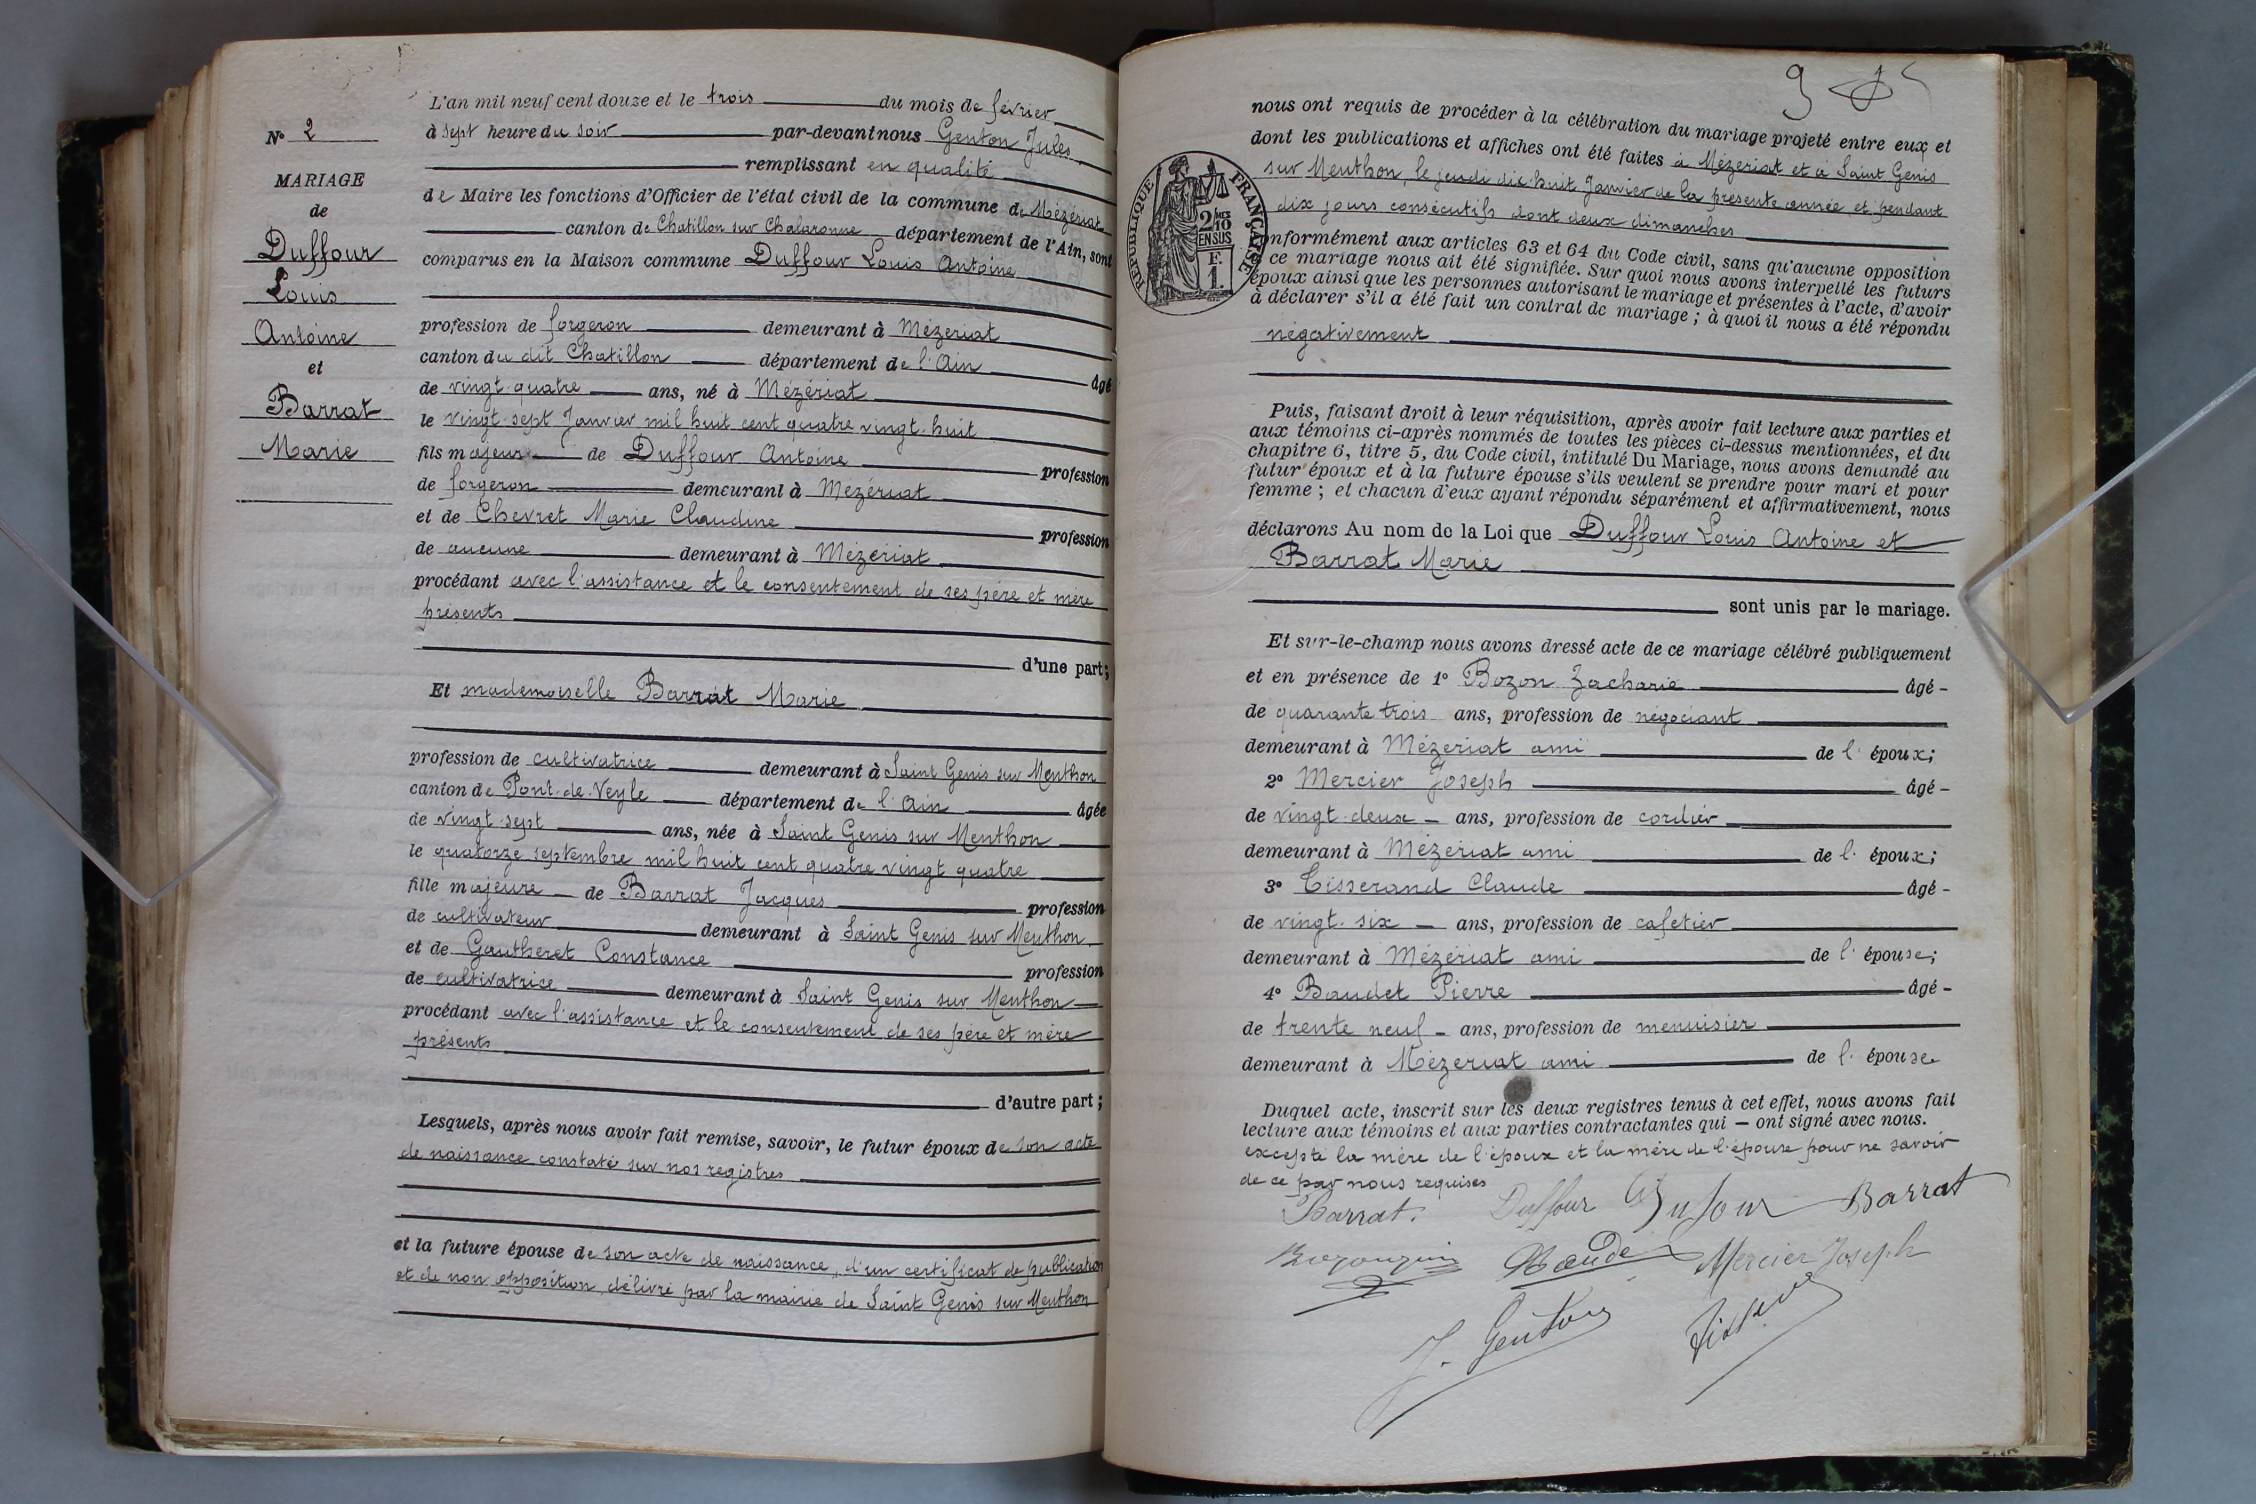 N° 2
MARIAGE
de
Duffour
Louis
Antoine
et
Barrat
Marie
L'an mil neuf cent douze et le trois du mois de février
à sept heure du soir par-devant nous Genton Jules
remplissant en qualité
de Maire les fonctions d'Officier de l'état civil de la commune de Mézériat
canton de Chatillon sur Chalaronne département de l'Ain, sont
comparus en la Maison commune Duffour Louis Antoine
profession de forgeron demeurant à Mézeriat
canton du dit Chatillon département de l'Ain âgé
de vingt-quatre ans, né à Mézériat
le vingt-sept Janvier mil huit cent quatre vingt-huit
fils majeur de Duffour Antoine profession
de forgeron demeurant à Mézériat
et de Chevret Marie Claudine profession
de aucune demeurant à Mézériat
procédant avec l'assistance et le consentement de ses père et mère
présents
d'une part;
Et mademoiselle Barrat Marie
profession de cultivatrice demeurant à Saint Genis sur Menthon
canton de Pont-de-Veyle département de l'Ain âgée
de vingt-sept ans, née à Saint Genis sur Menthon
le quatorze septembre mil huit cent quatre vingt quatre
fille majeure de Barrat Jacques profession
de cultivateur demeurant à Saint Genis sur Menthon
et de Gautheret Constance profession
de cultivatrice demeurant à Saint Genis sur Menthon
procédant avec l'assistance et le consentement de ses père et mère
présents
d'autre part;
Lesquels, après nous avoir fait remise, savoir, le futur époux de son acte
de naissance constaté sur nos registres
et la future épouse de son acte de naissance, d'un certificat de publication
et de non opposition délivré par la mairie de Saint Genis sur Menthon
9
RÉPUBLIQUE FRANÇAISE
2/10
EN SUS
F.
1.
nous ont requis de procéder à la célébration du mariage projeté entre eux et
dont les publications et affiches ont été faites à Mézeriat et à Saint Genis
sur Menthon, le jeudi dix-huit Janvier de la présente année et pendant
dix jours consécutifs dont deux dimanches
onformément aux articles 63 et 64 du Code civil, sans qu'aucune opposition
ce mariage nous ait été signifiée. Sur quoi nous avons interpellé les futurs
époux ainsi que les personnes autorisant le mariage et présentes à l'acte, d'avoir
à déclarer s'il a été fait un contrat de mariage; à quoi il nous a été répondu
négativement
Puis, faisant droit à leur réquisition, après avoir fait lecture aux parties et
aux témoins ci-après nommés de toutes les pièces ci-dessus mentionnées, et du
chapitre 6, titre 5, du Code civil, intitulé Du Mariage, nous avons demandé au
futur époux et à la future épouse s'ils veulent se prendre pour mari et pour
femme; et chacun d'eux ayant répondu séparément et affirmativement, nous
déclarons Au nom de la Loi que Duffour Louis Antoine et
Barrat Marie
sont unis par le mariage.
Et sur-le-champ nous avons dressé acte de ce mariage célébré publiquement
et en présence de 1° Bozon Zacharie âgé -
de quarante trois ans, profession de négociant
demeurant à Mézeriat ami de l'époux;
2° Mercier Joseph âgé -
de vingt-deux - ans, profession de cordier
demeurant à Mézériat ami de l'époux;
3° Tisserand Claude âgé -
de vingt-six - ans, profession de cafetier
demeurant à Mézériat ami de l'épouse;
4° Baudet Pierre âgé -
de trente neuf - ans, profession de menuisier
demeurant à Mézeriat ami de l'épouse
Duquel acte, inscrit sur les deux registres tenus à cet effet, nous avons fait
lecture aux témoins et aux parties contractantes qui - ont signé avec nous.
excepté la mère de l'époux et la mère de l'épouse pour ne savoir
de ce par nous requises
Barrat. Duffour Dufour Barrat
Mercier Joseph
J. Genton